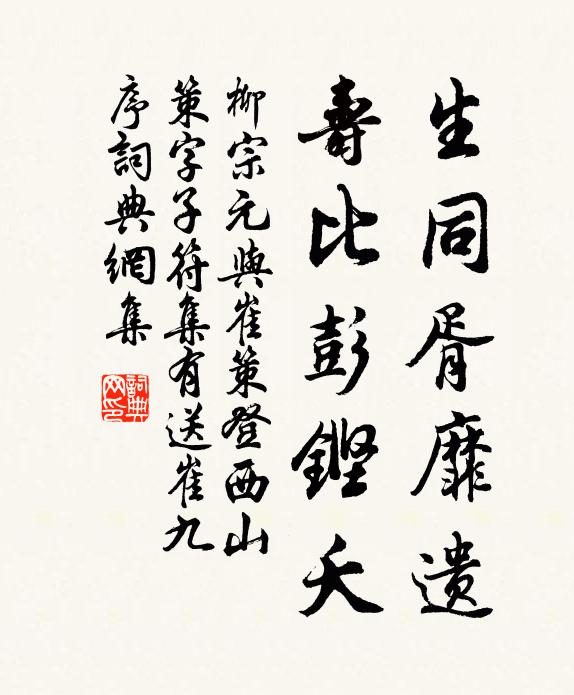 生同胥靡遗
壽比彭鏗夭
柳宗元與崔策登西山
策字子符集有送崔九
序詞典網集
詞典網印